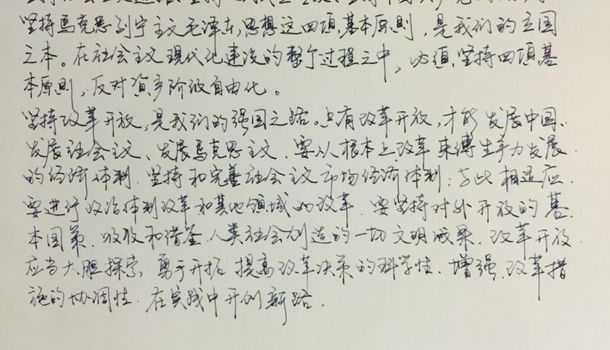 坚持马克思列宁主义毛泽东思想这四项基本原则，是我们的立国
之本。在社会主义现代化建设的整个过程之中，必须坚持四项基
本原则，反对资产阶级自由化。
坚持改革开放，是我们的强国之路。只有改革开放，才能发展中国、
发展社会主义、发展马克思主义．要从根本上改革束缚生产力发展
的经济体制．坚持和完善社会主义市场经济体制．与此相适应．
要进行政治体制改革和其他领域的改革．要坚持对外开放的基
本国策．吸收和借鉴人类社会创造的一切文明成果．改革开放
应当大胆探索 勇于开拓 提高改革决策的科学性．增强改革措
施的协调性．在实践中开创新路．